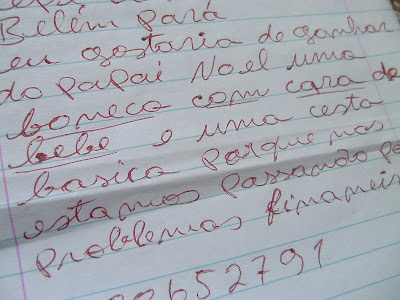 Belém Pará
eu gostaria de ganhar
do papai Noel uma
boneca com cara de
bebe e uma cesta
basica parque nas
estamos passando po
problemas financeis
00652791